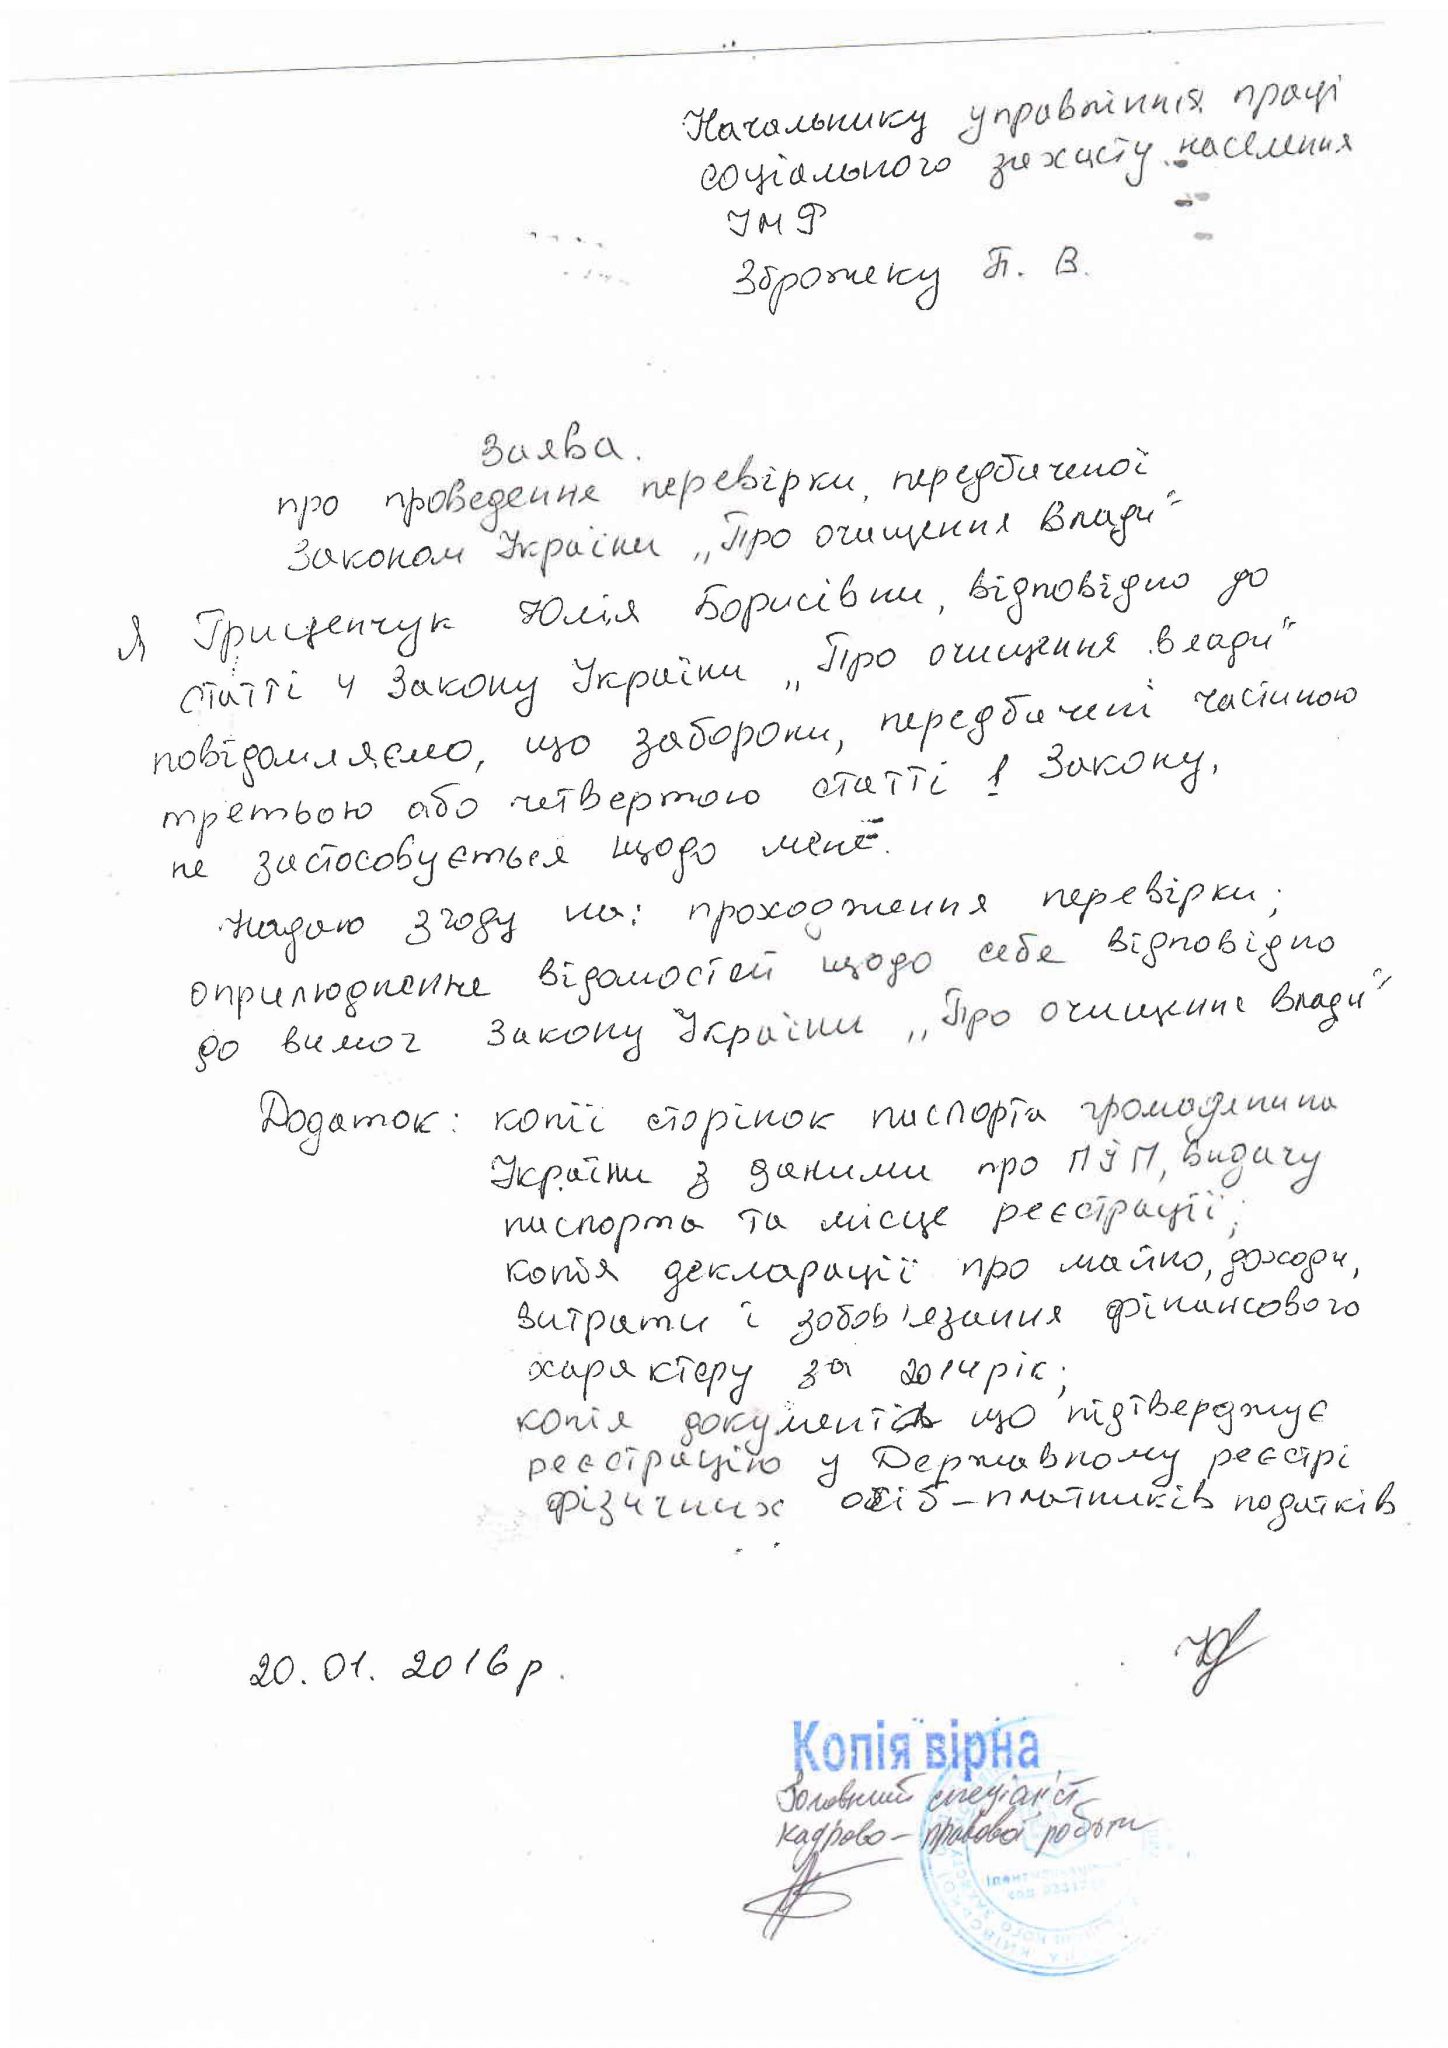 Начальнику управління праці
соціального захисту населення
Зброжеку П. В.
Заява.
про проведення перевірки, передбаченої
Законом України „Про очищення влади"
Я Грищенчук Юлія Борисівни, відповідно до
статті 4 Закону України „Про очищення влади"
повідомляємо, що заборони, передбачені частиною
третьою або четвертою статті 1 Закону,
не застосовується щодо мене.
Надаю згоду на: проходження перевірки;
оприлюднення відомостей щодо себе відповідно
до вимог Закону України „Про очищення влади"
Додаток: копії сторінок паспорта громадянина
України з даними про ПІП, видачу
паспорта та місце реєстрації;
копія декларації про майно, доходи,
витрати і зобов'язання фінансового
характеру за 2014 рік;
копія документів що підтверджує
реєстрацію у Державному реєстрі
фізичних осіб – платників податків
20.01.2016 р.
Копія вірна
Головний спеціаліст
кадрово – правової роботи